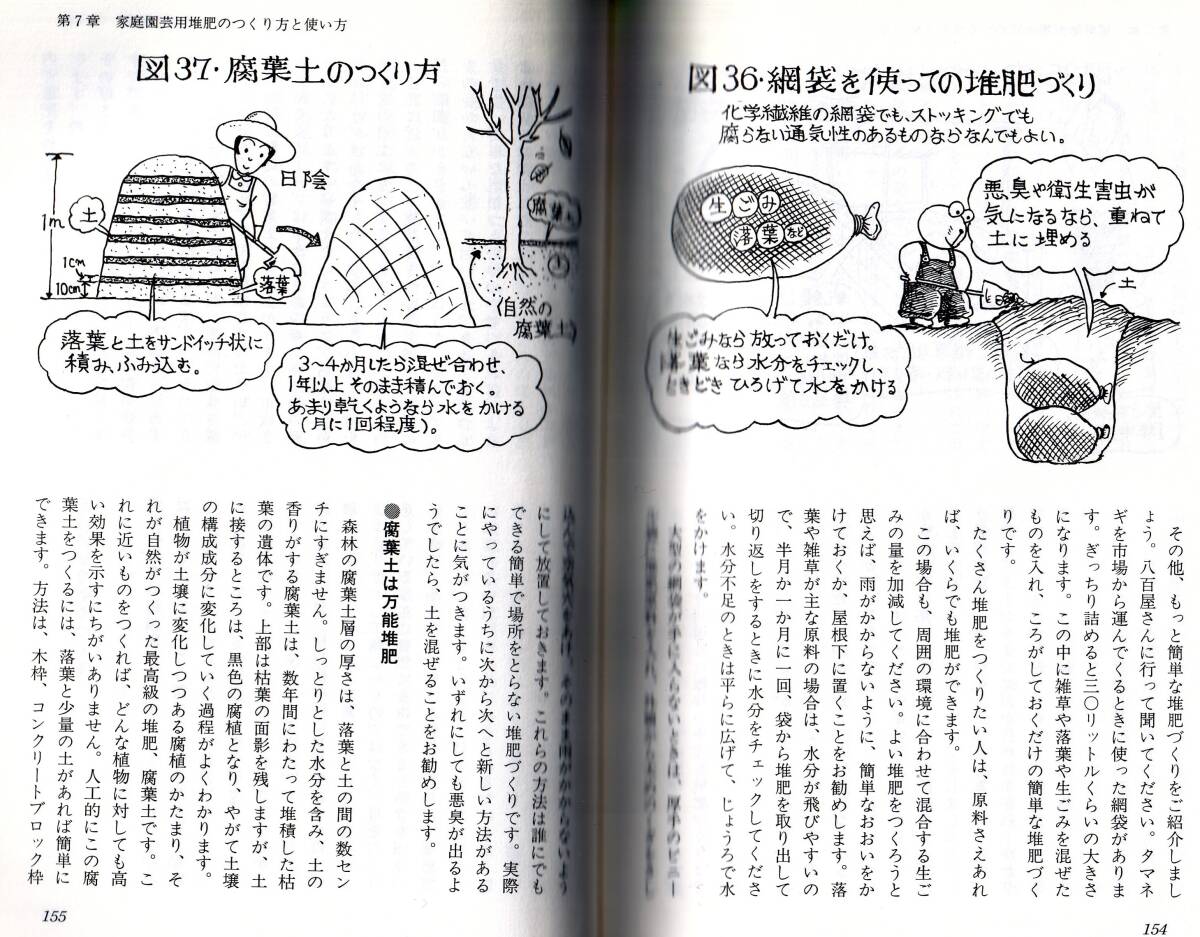 図36・網袋を使っての堆肥づくり
化学繊維の網袋でも、ストッキングでも
腐らない通気性のあるものならなんでもよい。
生ごみ
落葉など
悪臭や衛生害虫が
気になるなら、重ねて
土に埋める
土
生ごみなら放っておくだけ。
落葉なら水分をチェックし、
ときどきひろげて水をかける
その他、もっと簡単な堆肥づくりをご紹介しまし
ょう。八百屋さんに行って聞いてください。タマネ
ギを市場から運んでくるときに使った網袋がありま
す。ぎっちり詰めると三〇リットルくらいの大きさ
になります。この中に雑草や落葉や生ごみを混ぜた
ものを入れ、ころがしておくだけの簡単な堆肥づく
りです。
たくさん堆肥をつくりたい人は、原料さえあれ
ば、いくらでも堆肥ができます。
この場合も、周囲の環境に合わせて混合する生ご
みの量を加減してください。よい堆肥をつくろうと
思えば、雨がかからないように、簡単なおおいをか
けておくか、屋根下に置くことをお勧めします。落
葉や雑草が主な原料の場合は、水分が飛びやすいの
で、半月か一か月に一回、袋から堆肥を取り出して
切り返しをするときに水分をチェックしてくださ
い。水分不足のときは平らに広げて、じょうろで水
をかけます。
大型の網袋が手に入らないときは、厚手のビニー
154
第7章 家庭園芸用堆肥のつくり方と使い方
図37・腐葉土のつくり方
日陰
1m
土
1cm
10cm
落葉
腐葉土
自然の
腐葉土
落葉と土をサンドイッチ状に
積み、ふみ込む。
3〜4か月したら混ぜ合わせ、
1年以上そのまま積んでおく。
あまり乾くようなら水をかける
(月に1回程度)。
そのまま雨がかからないよう
にして放置しておきます。これらの方法は誰にでも
できる簡単で場所をとらない堆肥づくりです。実際
にやっているうちに次から次へと新しい方法がある
ことに気がつきます。いずれにしても悪臭が出るよ
うでしたら、土を混ぜることをお勧めします。
●腐葉土は万能堆肥
森林の腐葉土層の厚さは、落葉と土の間の数セン
チにすぎません。しっとりとした水分を含み、土の
香りがする腐葉土は、数年間にわたって堆積した枯
葉の遺体です。上部は枯葉の面影を残しますが、土
に接するところは、黒色の腐植となり、やがて土壌
の構成成分に変化していく過程がよくわかります。
植物が土壌に変化しつつある腐植のかたまり、そ
れが自然がつくった最高級の堆肥、腐葉土です。こ
れに近いものをつくれば、どんな植物に対しても高
い効果を示すにちがいありません。人工的にこの腐
葉土をつくるには、落葉と少量の土があれば簡単に
できます。方法は、木枠、コンクリートブロック枠
155